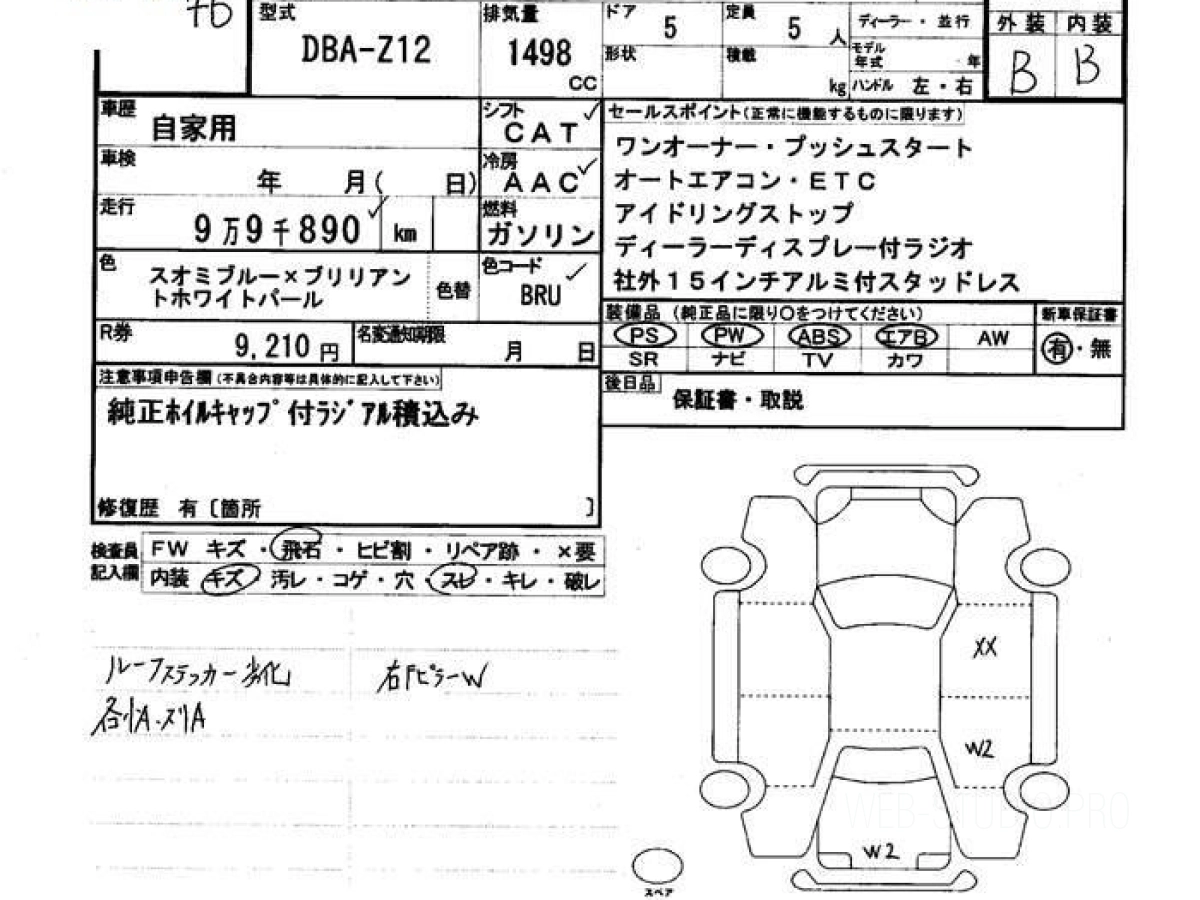 型式 排気量 ドア 5 定員 5 人 ディーラー・並行 外装 内装
DBA-Z12 1498 CC 形状 積載 kg モデル年式 年 B B
ハンドル 左・右
車歴 自家用 シフト CAT
車検 年 月( 日) 冷房 AAC
走行 9万9千890 km 燃料 ガソリン
色 スオミブルー×ブリリアン
トホワイトパール 色替 色コード BRU
R券 9,210 円 名変通知期限 月 日
セールスポイント(正常に機能するものに限ります)
ワンオーナー・プッシュスタート
オートエアコン・ETC
アイドリングストップ
ディーラーディスプレー付ラジオ
社外15インチアルミ付スタッドレス
装備品 (純正品に限り○をつけてください) 新車保証書
PS PW ABS エアB AW 有・無
SR ナビ TV カワ
後日品 保証書・取説
注意事項申告欄(不具合内容等は具体的に記入して下さい)
純正ホイルキャップ付ラジアル積込み
修復歴 有〔箇所 〕
検査員記入欄
FW キズ・飛石・ヒビ割・リペア跡・×要
内装 キズ・汚レ・コゲ・穴・スレ・キレ・破レ
ルーフステッカー劣化 右FピラーW
各小A・スリA
XX
W2
W2
スペア
WEB-STUDIO.PRO